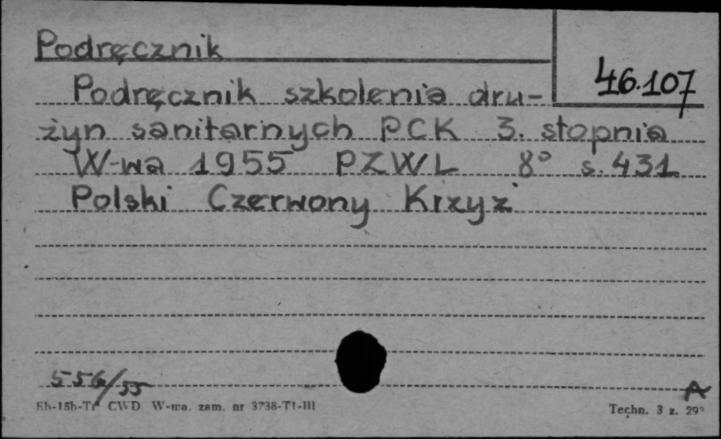 Podręcznik
46.107
Podręcznik szkolenia dru-
żyn sanitarnych PCK 3. stopnia
W-wa 1955 PZWL 8° s. 431
Polski Czerwony Krzyż
556/55
A
CWD W-wa. zam. nr 3738-T1-III
Techn. 3 z. 29